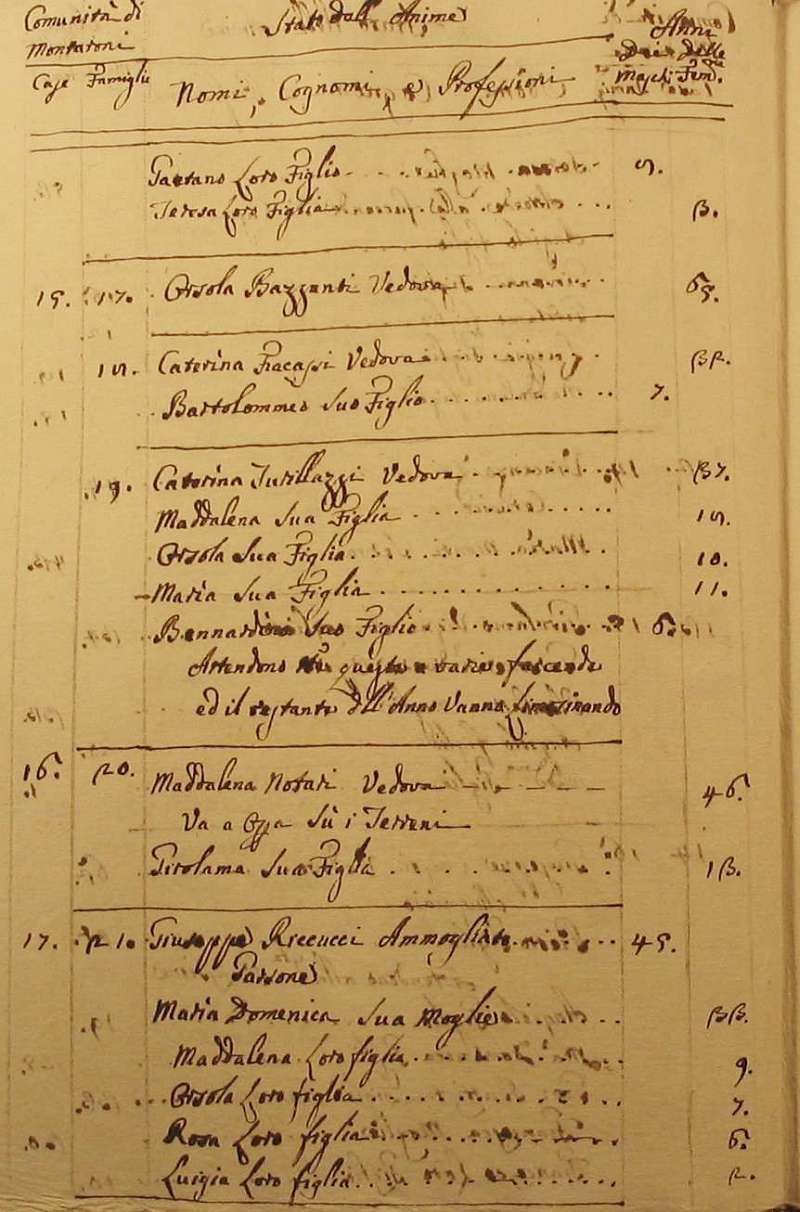 Comunità di Stato dell' Anime Anni
Montaroni Dei Delle
Case Famiglie Nomi, Cognomi, e Professioni Maschi Fem.
Gaetano Loro Figlio 5.
Teresa Loro Figlia 3.
15. 17. Orsola Vedova 65.
18. Caterina Fracassi Vedova 32.
Bartolommeo Suo Figlio 7.
19. Caterina Vedova 37.
Maddalena Sua Figlia 15.
Orsola Sua Figlia 10.
Maria Sua Figlia 11.
Bernardino Suo Figlio 6.
Attendono questa a varie faccende
ed il restante dell'Anno Vanno limosinando
16. 20. Maddalena Notari Vedova 46.
Va a Opra Sù i Terreni
Girolama Sua Figlia 13.
17. 21. Giuseppe Riccucci Ammogliato 45.
Garzone
Maria Domenica Sua Moglie 33.
Maddalena Loro figlia 9.
Orsola Loro figlia 7.
Rosa Loro figlia 6.
Luigia Loro figlia 2.